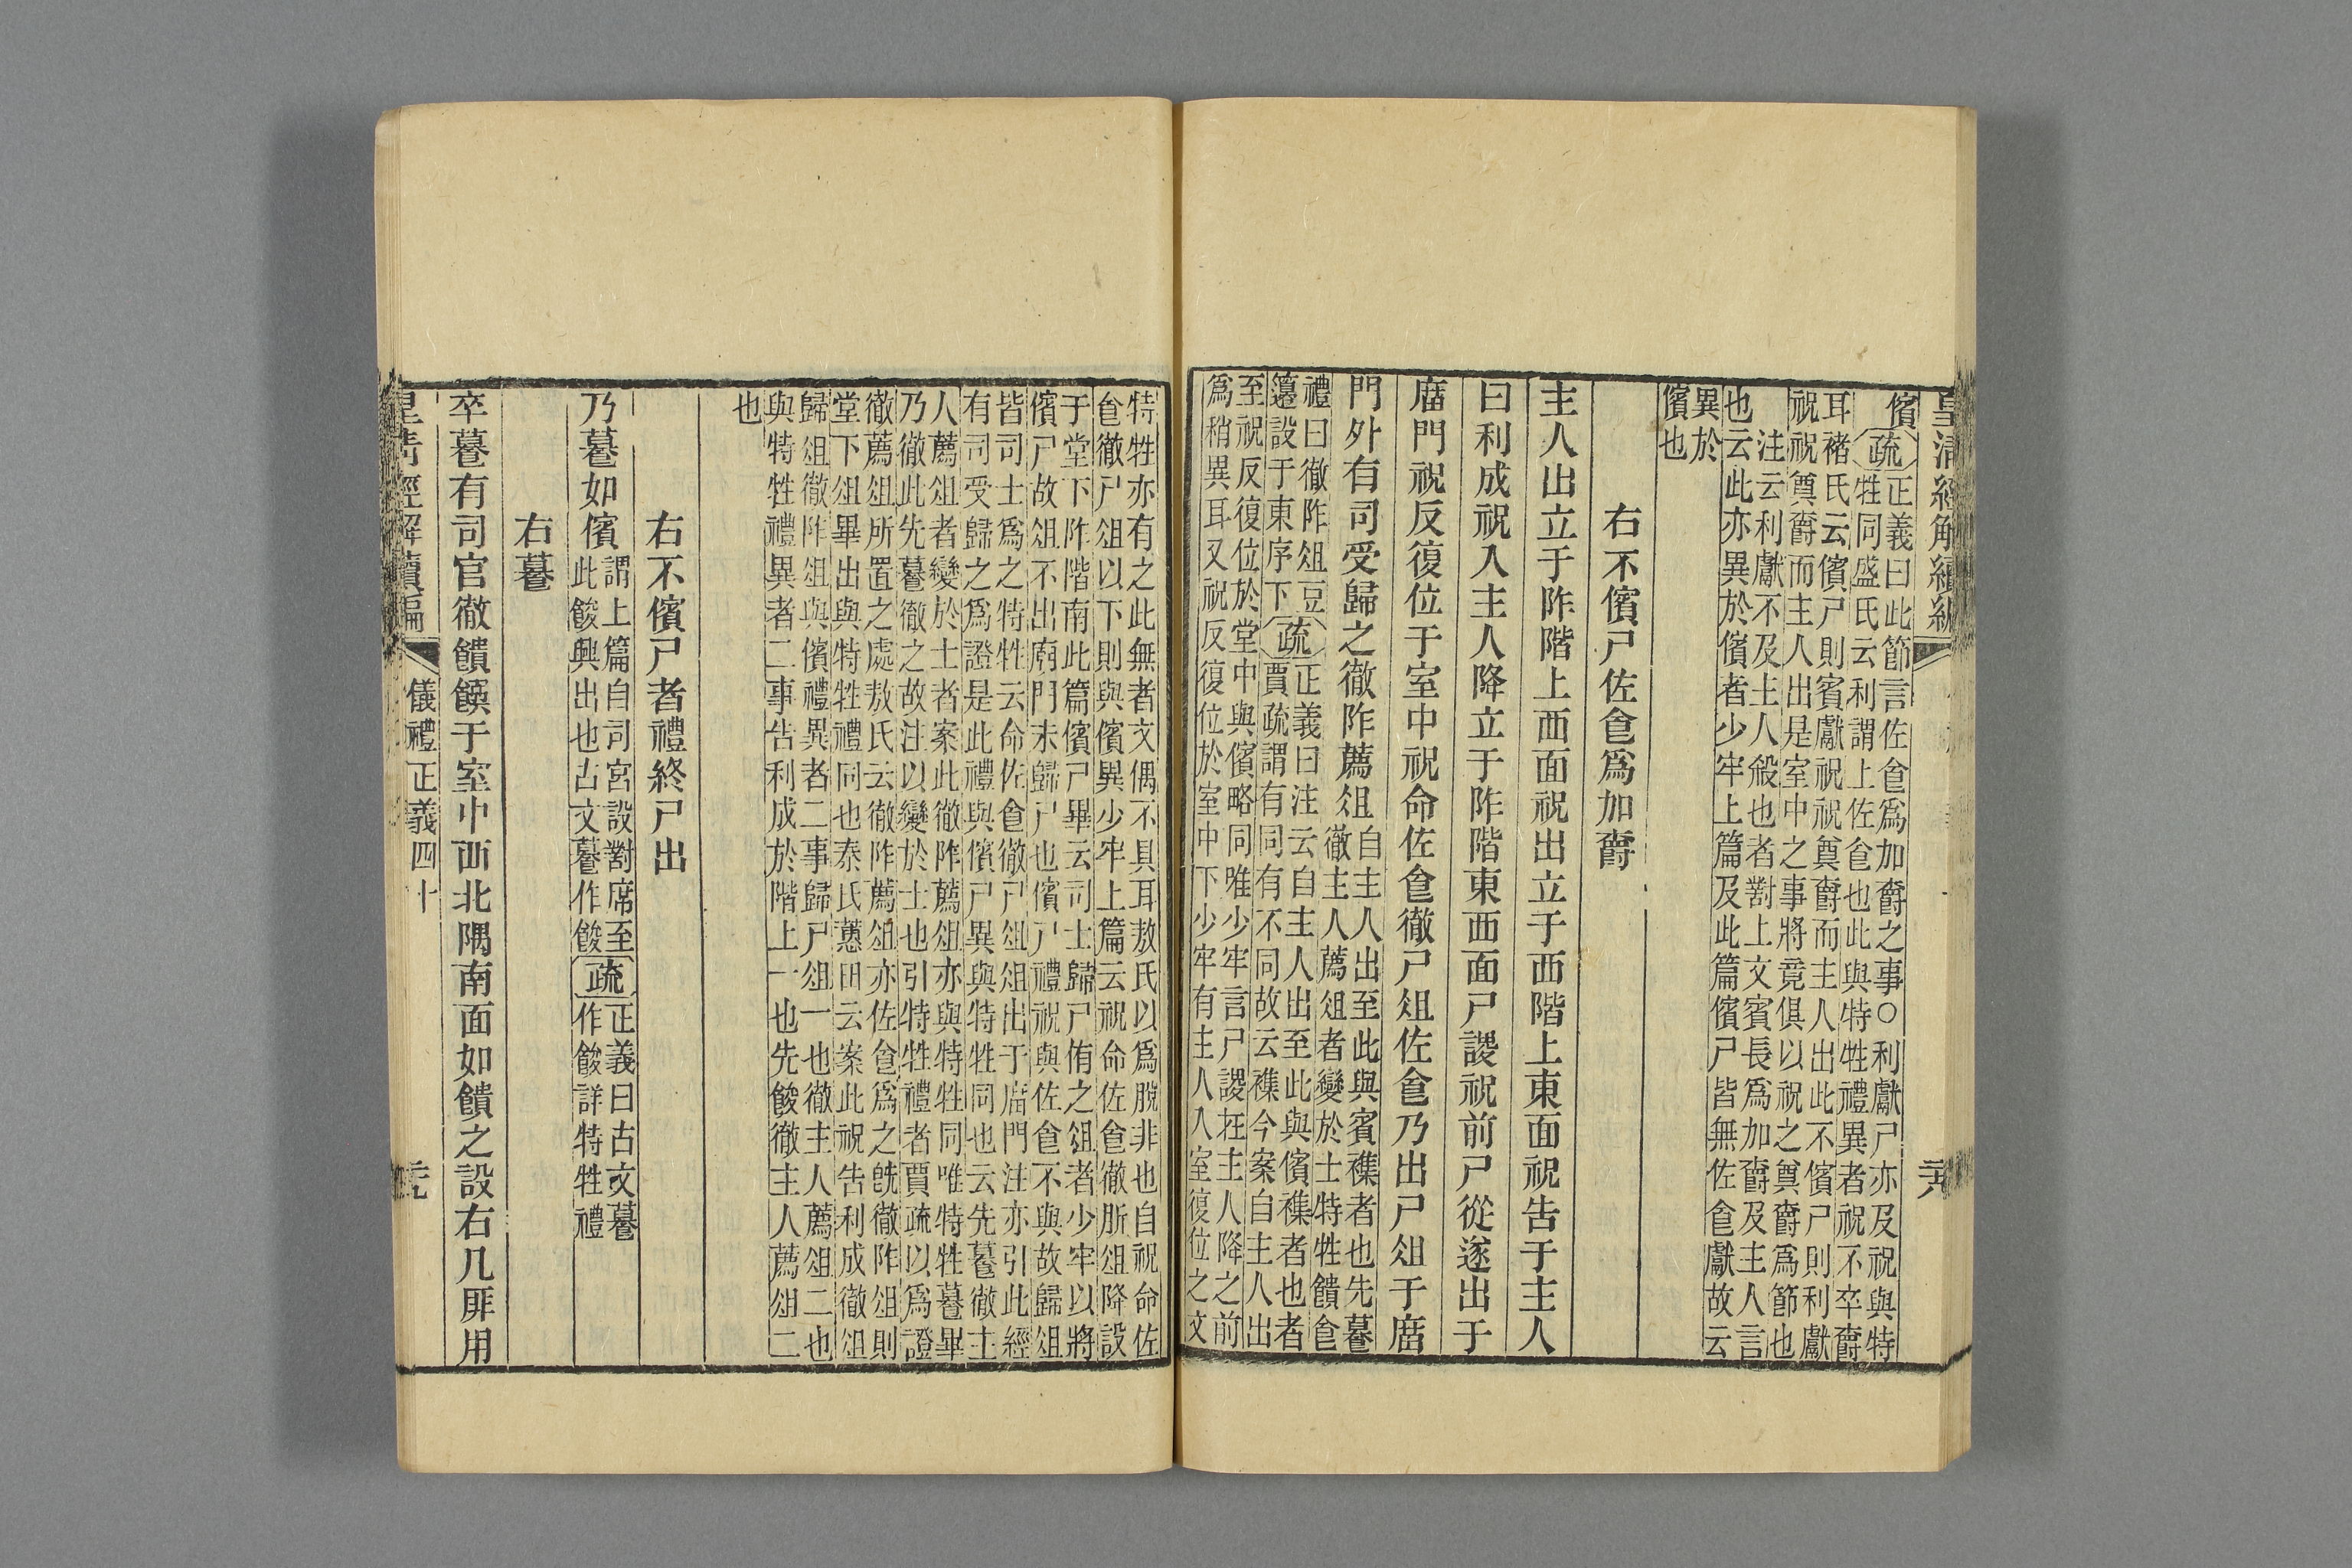 皇清經解續編
儐 疏 正義曰此節言佐食爲加爵之事○利獻尸亦及祝與特
牲同盛氏云利謂上佐食也此與特牲禮異者祝不卒爵
耳褚氏云儐尸則賓獻祝祝奠爵而主人出此不儐尸則利獻
祝祝奠爵而主人出是室中之事將竟俱以祝之奠爵爲節也
注云利獻不及主人殺也者對上文賓長爲加爵及主人言
也云此亦異於儐者少牢上篇及此篇儐尸皆無佐食獻故云
異於
儐也
右不儐尸佐食爲加爵
主人出立于阼階上西面祝出立于西階上東面祝告于主人
曰利成祝入主人降立于阼階東西面尸謖祝前尸從遂出于
庿門祝反復位于室中祝命佐食徹尸俎佐食乃出尸俎于庿
門外有司受歸之徹阼薦俎 自主人出至此與賓襍者也先餕
徹主人薦俎者變於士特牲饋食
禮曰徹阼俎豆 疏 正義曰注云自主人出至此與儐襍者也者
籩設于東序下 賈疏謂有同有不同故云襍今案自主人出
至祝反復位於堂中與儐略同唯少牢言尸謖在主人降之前
爲稍異耳又祝反復位於室中下少牢有主人入室復位之文
特牲亦有之此無者文偶不具耳敖氏以爲脫非也自祝命佐
食徹尸俎以下則與儐異少牢上篇云祝命佐食徹肵俎降設
于堂下阼階南此篇儐尸畢云司士歸尸侑之俎者少牢以將
儐尸故俎不出廟門未歸尸也儐尸禮祝與佐食不與故歸俎
皆司士爲之特牲云命佐食徹尸俎俎出于庿門注亦引此經
有司受歸之爲證是此禮與儐尸異與特牲同也云先餕徹主
人薦俎者變於士者案此徹阼薦俎亦與特牲同唯特牲餕畢
乃徹此先餕徹之故注以變於士也引特牲禮者賈疏以爲證
徹薦俎所置之處敖氏云徹阼薦俎亦佐食爲之旣徹阼俎則
堂下俎畢出與特牲禮同也秦氏蕙田云案此祝告利成徹俎
歸俎徹阼俎與儐禮異者二事歸尸俎一也徹主人薦俎二也
與特牲禮異者二事告利成於階上一也先餕徹主人薦俎二
也
右不儐尸者禮終尸出
乃餕如儐 謂上篇自司宮設對席至 疏 正義曰古文餕
此餕興出也古文餕作餕 作餕詳特牲禮
右餕
卒餕有司官徹饋饌于室中西北隅南面如饋之設右几厞用
皇清經解續編 儀禮正義四十